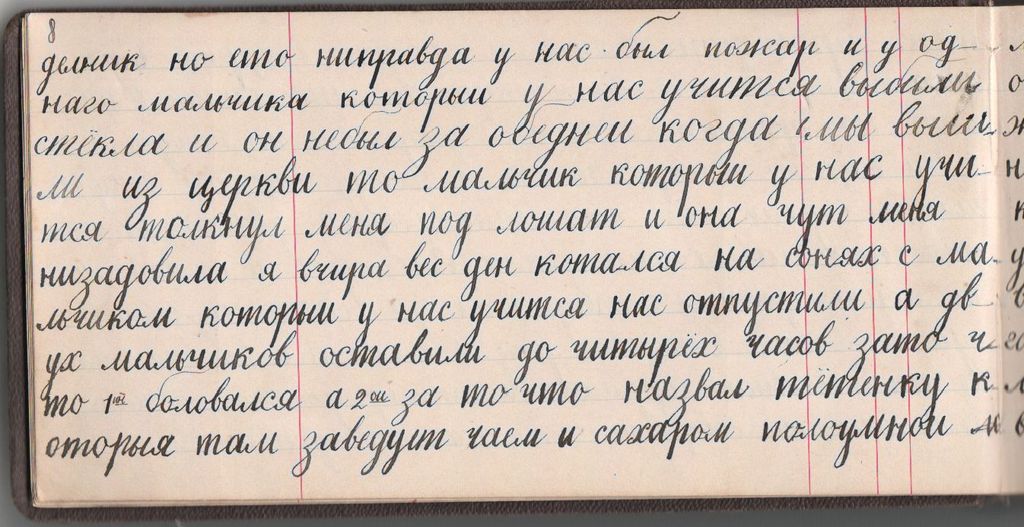 8
делник но ето ниправда у нас был пожар и у од-
наго мальчика которыи у нас учится выбили
стёкла и он небыл за обеднеи когда мы выш-
ли из церкви то мальчик которыи у нас учи-
тся толкнул меня под лошат и она чут меня
низадовила я вчира вес ден котался на сонях с ма-
льчиком которыи у нас учится нас отпустили а дв-
ух мальчиков оставили до читырёх часов зато ч-
то 1ый боловался а 2ои за то что назвал тётенку к
оторыя там заведует чаем и сахаром полоумнои